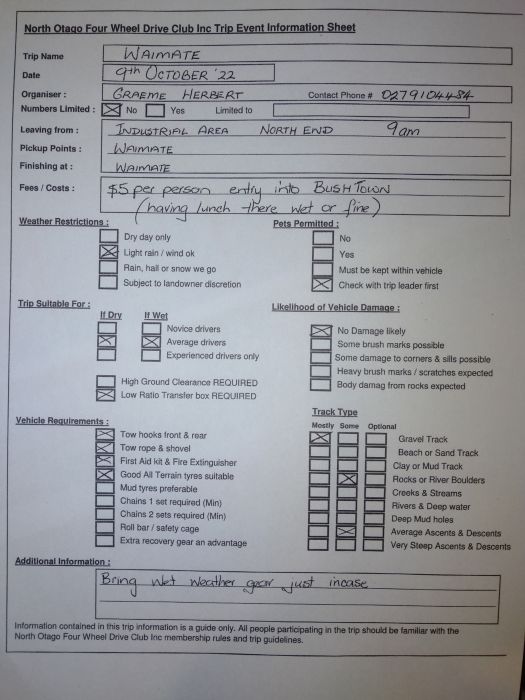 North Otago Four Wheel Drive Club Inc Trip Event Information Sheet
Trip Name WAIMATE
Date 9th OCTOBER '22
Organiser : GRAEME HERBERT Contact Phone # 0279104484
Numbers Limited : No Yes Limited to
Leaving from : INDUSTRIAL AREA NORTH END 9am
Pickup Points : WAIMATE
Finishing at : WAIMATE
Fees / Costs : $5 per person entry into BUSH TOWN
(having lunch there wet or fine)
Weather Restrictions : Pets Permitted :
Dry day only No
Light rain / wind ok Yes
Rain, hail or snow we go Must be kept within vehicle
Subject to landowner discretion Check with trip leader first
Trip Suitable For : Likelihood of Vehicle Damage :
If Dry If Wet
Novice drivers No Damage likely
Average drivers Some brush marks possible
Experienced drivers only Some damage to corners & sills possible
Heavy brush marks / scratches expected
High Ground Clearance REQUIRED Body damag from rocks expected
Low Ratio Transfer box REQUIRED
Track Type
Vehicle Requirements : Mostly Some Optional
Tow hooks front & rear Gravel Track
Tow rope & shovel Beach or Sand Track
First Aid kit & Fire Extinguisher Clay or Mud Track
Good All Terrain tyres suitable Rocks or River Boulders
Mud tyres preferable Creeks & Streams
Chains 1 set required (Min) Rivers & Deep water
Chains 2 sets required (Min) Deep Mud holes
Roll bar / safety cage Average Ascents & Descents
Extra recovery gear an advantage Very Steep Ascents & Descents
Additional Information :
Bring wet weather gear just incase
Information contained in this trip information is a guide only. All people participating in the trip should be familiar with the
North Otago Four Wheel Drive Club Inc membership rules and trip guidelines.